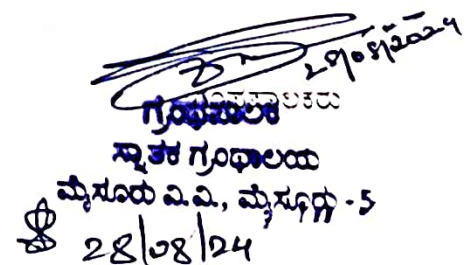 28/08/2024
ಗ್ರಂಥಪಾಲಕರು
ಗ್ರಂಥಪಾಲಕ
ಸ್ನಾತಕ ಗ್ರಂಥಾಲಯ
ಮೈಸೂರು ವಿ.ವಿ., ಮೈಸೂರು -5
28/08/24